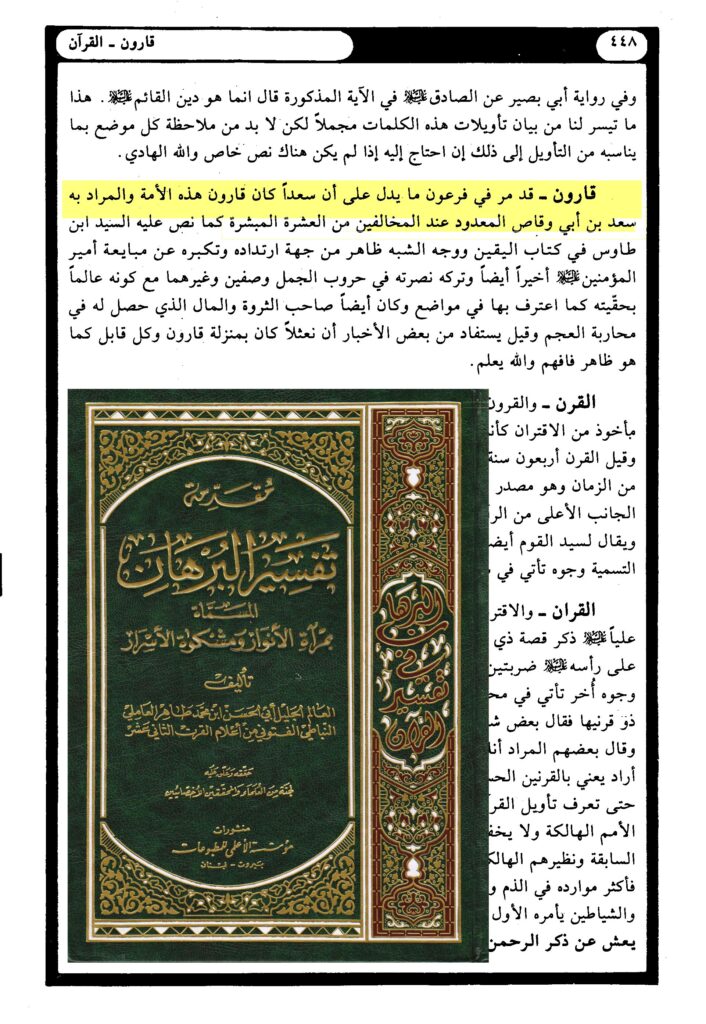 ٤٤٨
قارون ـ القرآن
وفي رواية أبي بصير عن الصادق عليه السلام في الآية المذكورة قال انما هو دين القائم عليه السلام. هذا
ما تيسر لنا من بيان تأويلات هذه الكلمات مجملاً لكن لا بد من ملاحظة كل موضع بما
يناسبه من التأويل إلى ذلك إن احتاج إليه إذا لم يكن هناك نص خاص والله الهادي.
قارون ـ قد مر في فرعون ما يدل على أن سعداً كان قارون هذه الأمة والمراد به
سعد بن أبي وقاص المعدود عند المخالفين من العشرة المبشرة كما نص عليه السيد ابن
طاوس في كتاب اليقين ووجه الشبه ظاهر من جهة ارتداده وتكبره عن مبايعة أمير
المؤمنين عليه السلام أخيراً أيضاً وتركه نصرته في حروب الجمل وصفين وغيرهما مع كونه عالماً
بحقّيته كما اعترف بها في مواضع وكان أيضاً صاحب الثروة والمال الذي حصل له في
محاربة العجم وقيل يستفاد من بعض الأخبار أن نعثلاً كان بمنزلة قارون وكل قابل كما
هو ظاهر فافهم والله يعلم.
القرن ـ والقرون
مأخوذ من الاقتران كأنه
وقيل القرن أربعون سنة
من الزمان وهو مصدر
الجانب الأعلى من الر
ويقال لسيد القوم أيض
التسمية وجوه تأتي في
القران ـ والاقتر
علياً عليه السلام ذكر قصة ذي
على رأسه عليه السلام ضربتين
وجوه أُخر تأتي في مح
ذو قرنيها فقال بعض ش
وقال بعضهم المراد أنا
أراد يعني بالقرنين الحس
حتى تعرف تأويل القرآ
الأمم الهالكة ولا يخف
السابقة ونظيرهم الهالك
فأكثر موارده في الذم و
والشياطين يأمره الأول
يعش عن ذكر الرحمن
مقدمة
تفسير البرهان
المسماة
بمرآة الأنوار ومشكوة الأسرار
تأليف
العالم الجليل أبي الحسن ابن محمد طاهر العاملي
النباطي الفتوني من أعلام القرن الثاني عشر
حققه وعلق عليه
لجنة من العلماء والمحققين الأخصائيين
منشورات
مؤسسة الأعلمي للمطبوعات
بيروت - لبنان
البرهان
في
تفسير
القرآن